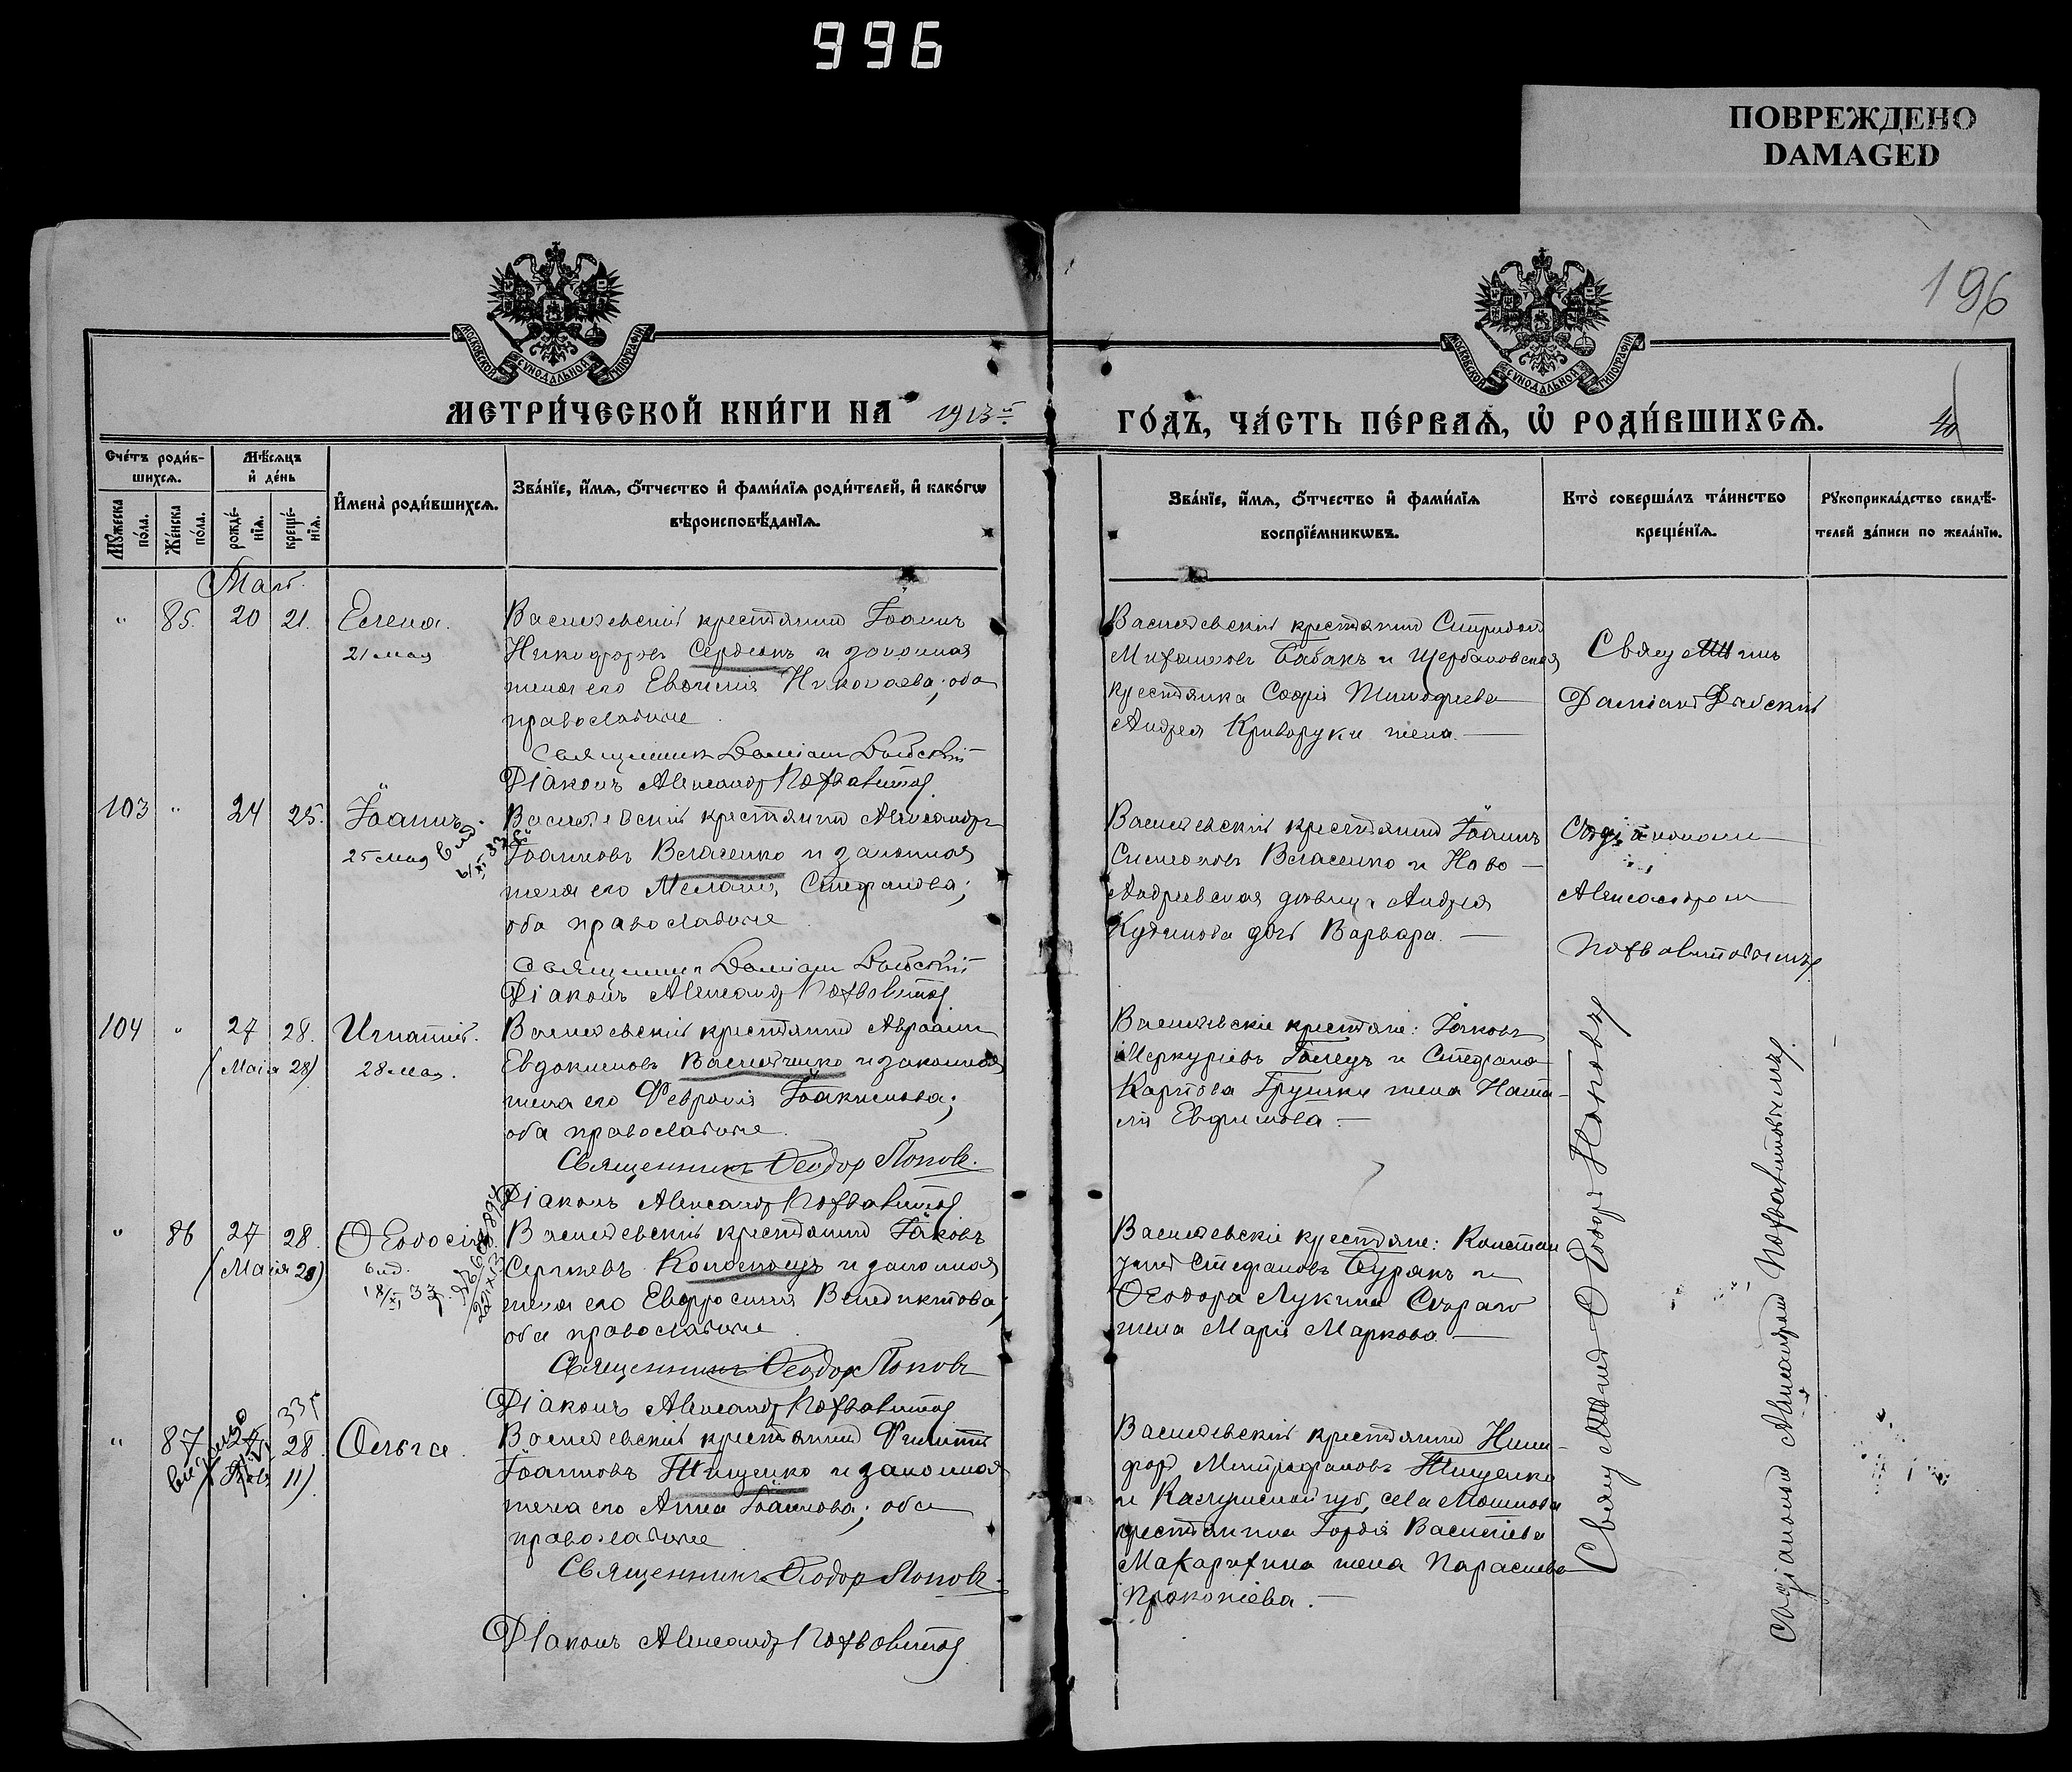 996
ПОВРЕЖДЕНО
DAMAGED
196
МОСКОВСКОЙ СѴНОДАЛЬНОЙ ТИПОГРАФІИ
МОСКОВСКОЙ СѴНОДАЛЬНОЙ ТИПОГРАФІИ
МЕТРИ́ЧЕСКОЙ КНИ́ГИ НА 1913й
ГО́ДЪ, ЧА́СТЬ ПЕ́РВАѦ, Ѽ РОДИ́ВШИХСѦ.
Сче́тъ роди́в-
шихсѧ.
Мѣ́сѧцъ
и҆ де́нь
Мꙋ́жеска
по́ла.
Же́нска
по́ла.
рожде́-
нїѧ.
креще́-
нїѧ.
И҆мена̀ роди́вшихсѧ.
Зва́нїе, и҆́мѧ, ѻ҆́тчество и҆ фами́лїѧ роди́телей, и҆ како́гѡ
вѣроисповѣ́данїѧ.
Зва́нїе, и҆́мѧ, ѻ҆́тчество и҆ фами́лїѧ
воспрїе́мникѡвъ.
Кто̀ соверша́лъ та́инство
креще́нїѧ.
Рꙋкоприкла́дство свидѣ́-
телей за́писи по жела́нїю.
Май.
" 85. 20 21. Елена.
21 мая
Васильевскій крестьянинъ Іоаннъ
Никифоровъ Сердюкъ и законная
жена его Евгенія Николаева; оба
православные
Священникъ Даміанъ
Діаконъ Александръ
Васильевскій крестьянинъ Спиридонъ
Михаиловъ Бабакъ и Щербаковская
крестьянка Софія Тимофеева
Андрея Криворуки жена.
Священникъ
Даміанъ
103 " 24 25. Іоаннъ
25 мая
Васильевскій крестьянинъ Александръ
Іоанновъ Власенко и законная
жена его Меланія Стефанова;
оба православные
Священникъ Даміанъ
Діаконъ Александръ
Васильевскій крестьянинъ Іоаннъ
Симеоновъ Власенко и Ново-
Андреевская девица Андрея
дочь Варвара.
Александромъ
104 " 27 28. Игнатій.
(Маія 28) 28 мая.
Васильевскій крестьянинъ Авраамъ
Евдокимовъ Василенко и законная
жена его Февронія Іоакимова;
оба православные
Священникъ Ѳеодоръ Поповъ.
Діаконъ Александръ
Васильевскіе крестьяне: Іаковъ
Меркуріевъ и Стефана
Карпова Грушки жена Ната-
лія Евфимова.
" 86 27 28. Ѳеодосія
(Маія 28)
Васильевскій крестьянинъ Іаковъ
Сергіевъ и законная
жена его Евфросинія Венедиктова;
оба православные
Священникъ Ѳеодоръ Поповъ
Діаконъ Александръ
Васильевскіе крестьяне: Констан
тинъ Стефановъ Бурякъ и
Ѳеодора Лукина
жена Марія Маркова
" 87 28. Ольга
11)
Васильевскій крестьянинъ Филиппъ
Іоанновъ Тищенко и законная
жена его Анна Іоаннова; оба
православные
Священникъ Ѳеодоръ Поповъ
Діаконъ Александръ
Васильевскій крестьянинъ Ники-
форъ Митрофановъ Тищенко
и Калужской губ, села
крестьянина Гордія Васильева
жена Параскева
Прокопіева.
Священникъ Ѳеодоръ Поповъ